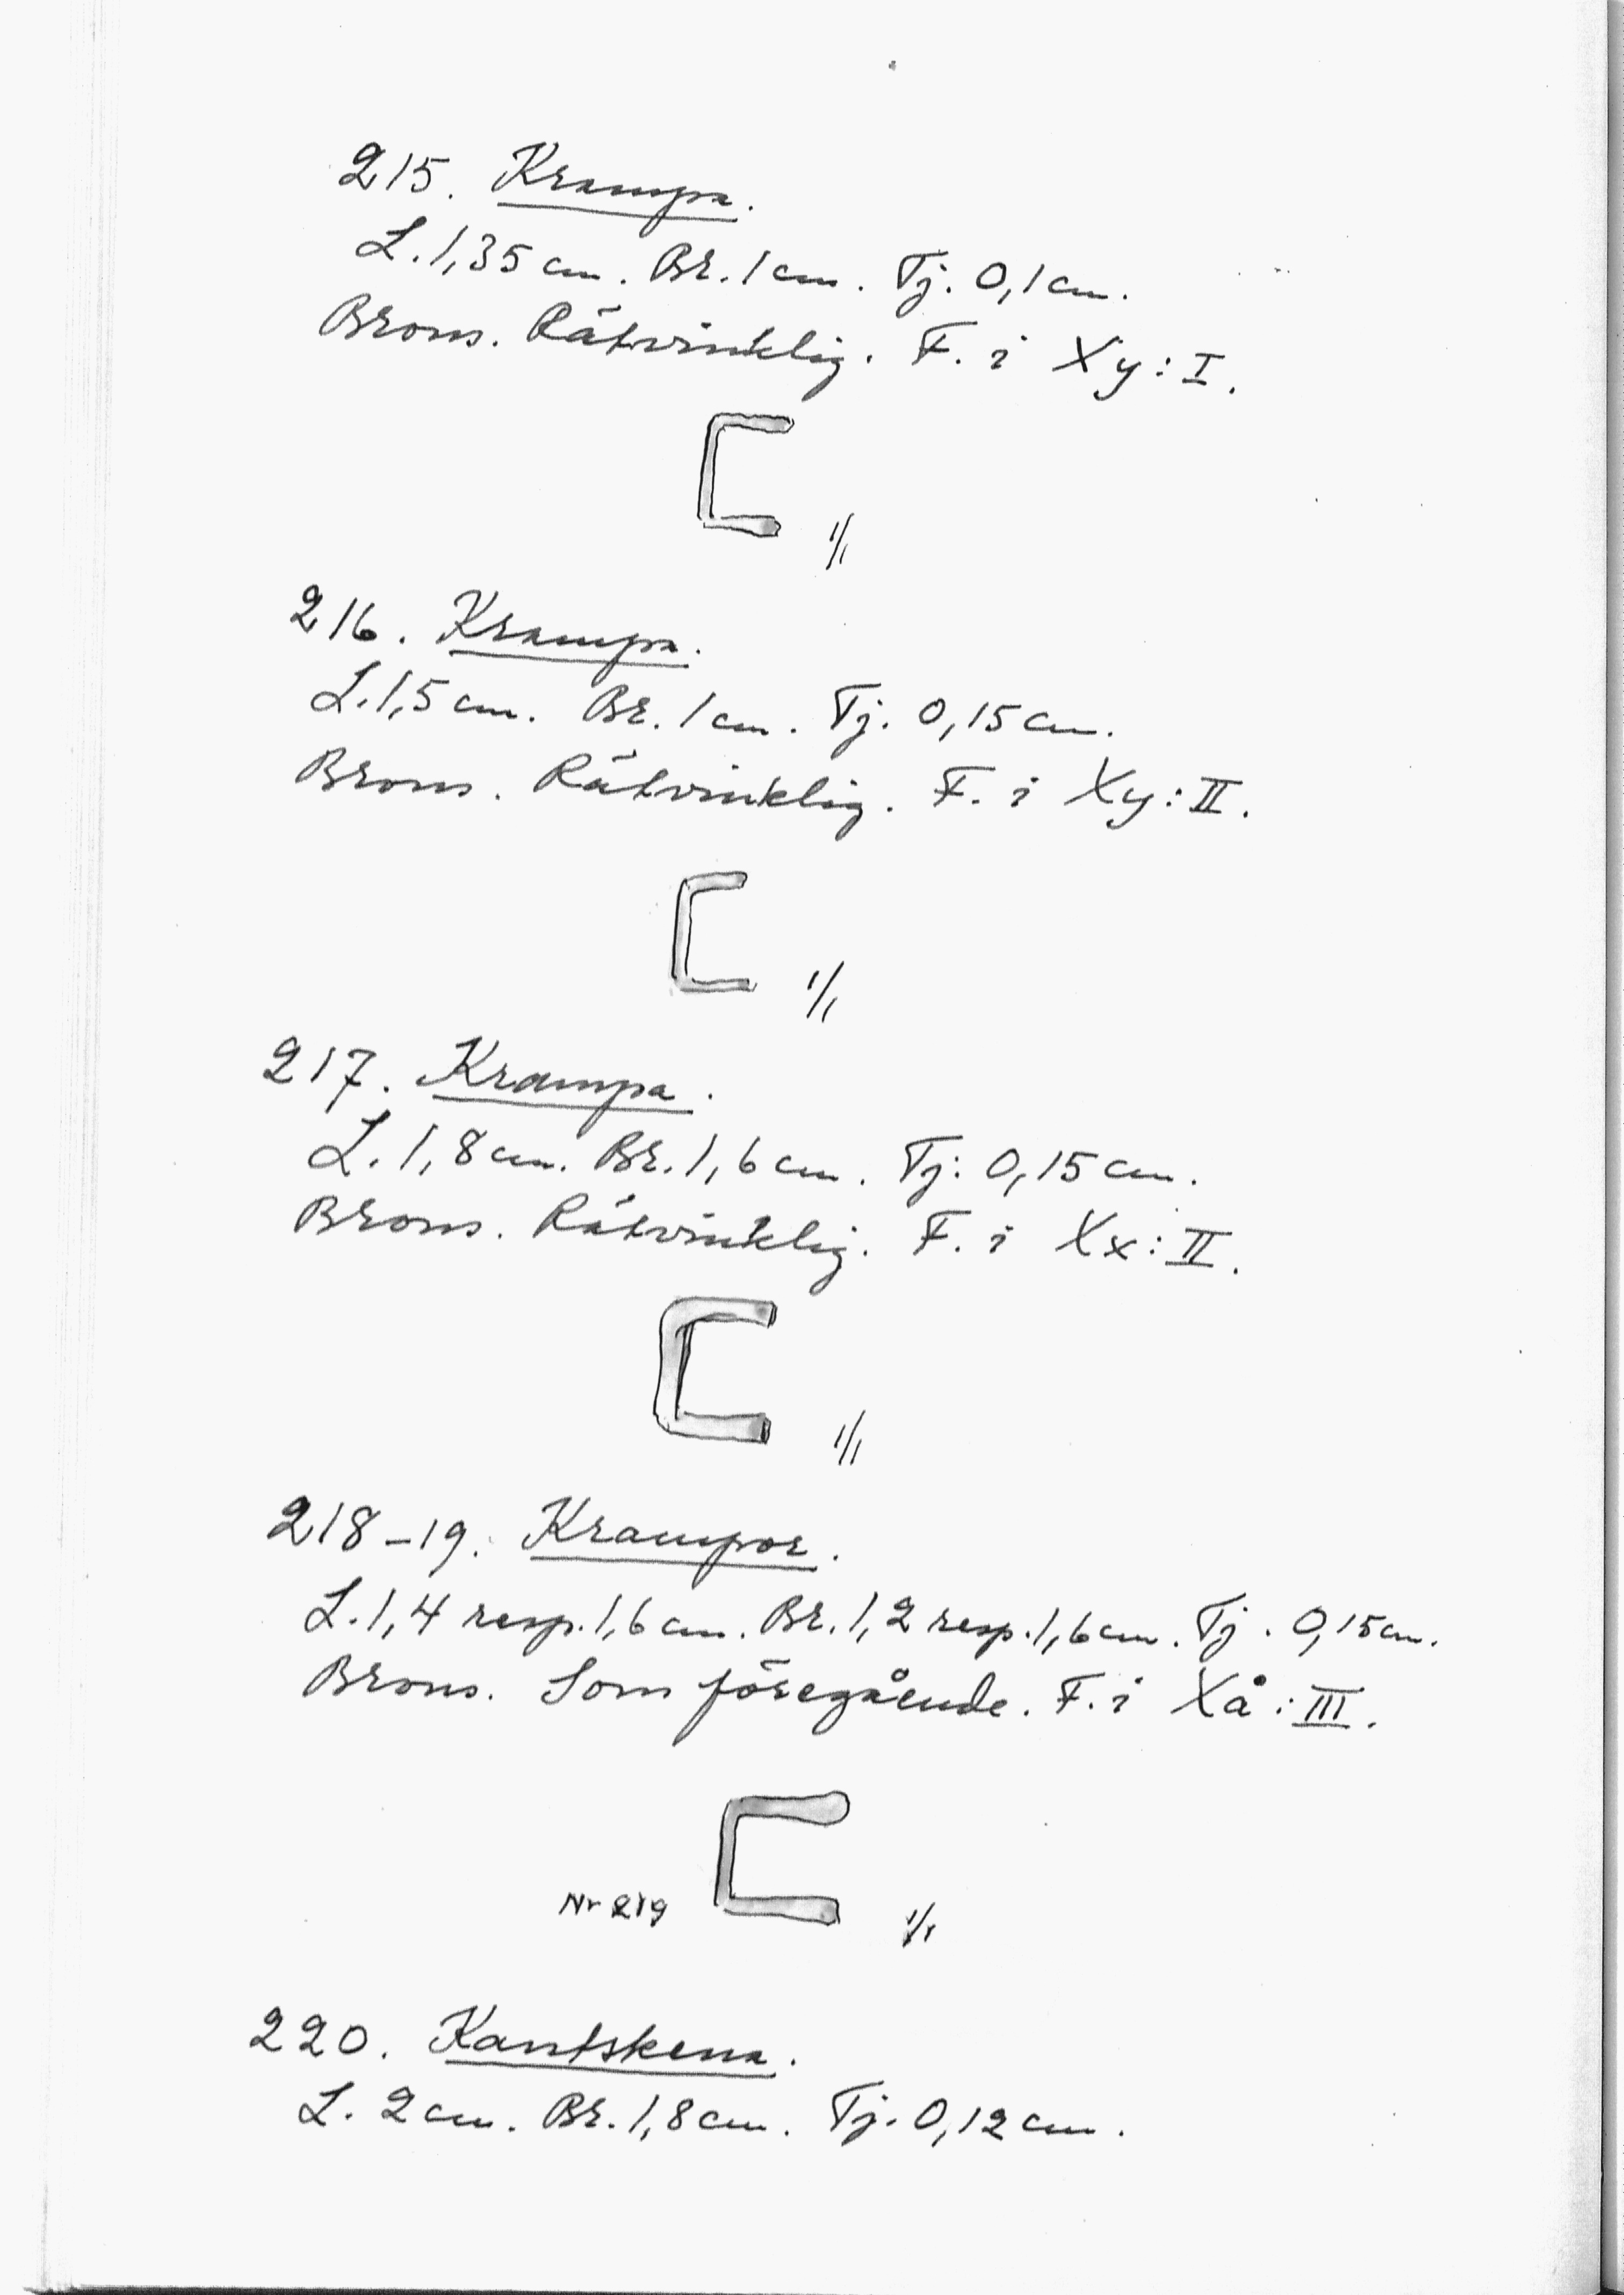 215. Krampa.
L. 1,35 cm. Br. 1 cm. Tj. 0,1 cm.
Brons. Rätvinklig. F. i Xy: I.
1/1
216. Krampa.
L. 1,5 cm. Br. 1 cm. Tj. 0,15 cm.
Brons. Rätvinklig. F. i Xy: II.
1/1
217. Krampa.
L. 1,8 cm. Br. 1,6 cm. Tj. 0,15 cm.
Brons. Rätvinklig. F. i Xx: II.
1/1
218-19. Krampor.
L. 1,4 resp. 1,6 cm. Br. 1,2 resp. 1,6 cm. Tj. 0,15 cm.
Brons. Som föregående. F. i Xå: III.
Nr 219 1/1
220. Kantskena.
L. 2 cm. Br. 1,8 cm. Tj. 0,12 cm.